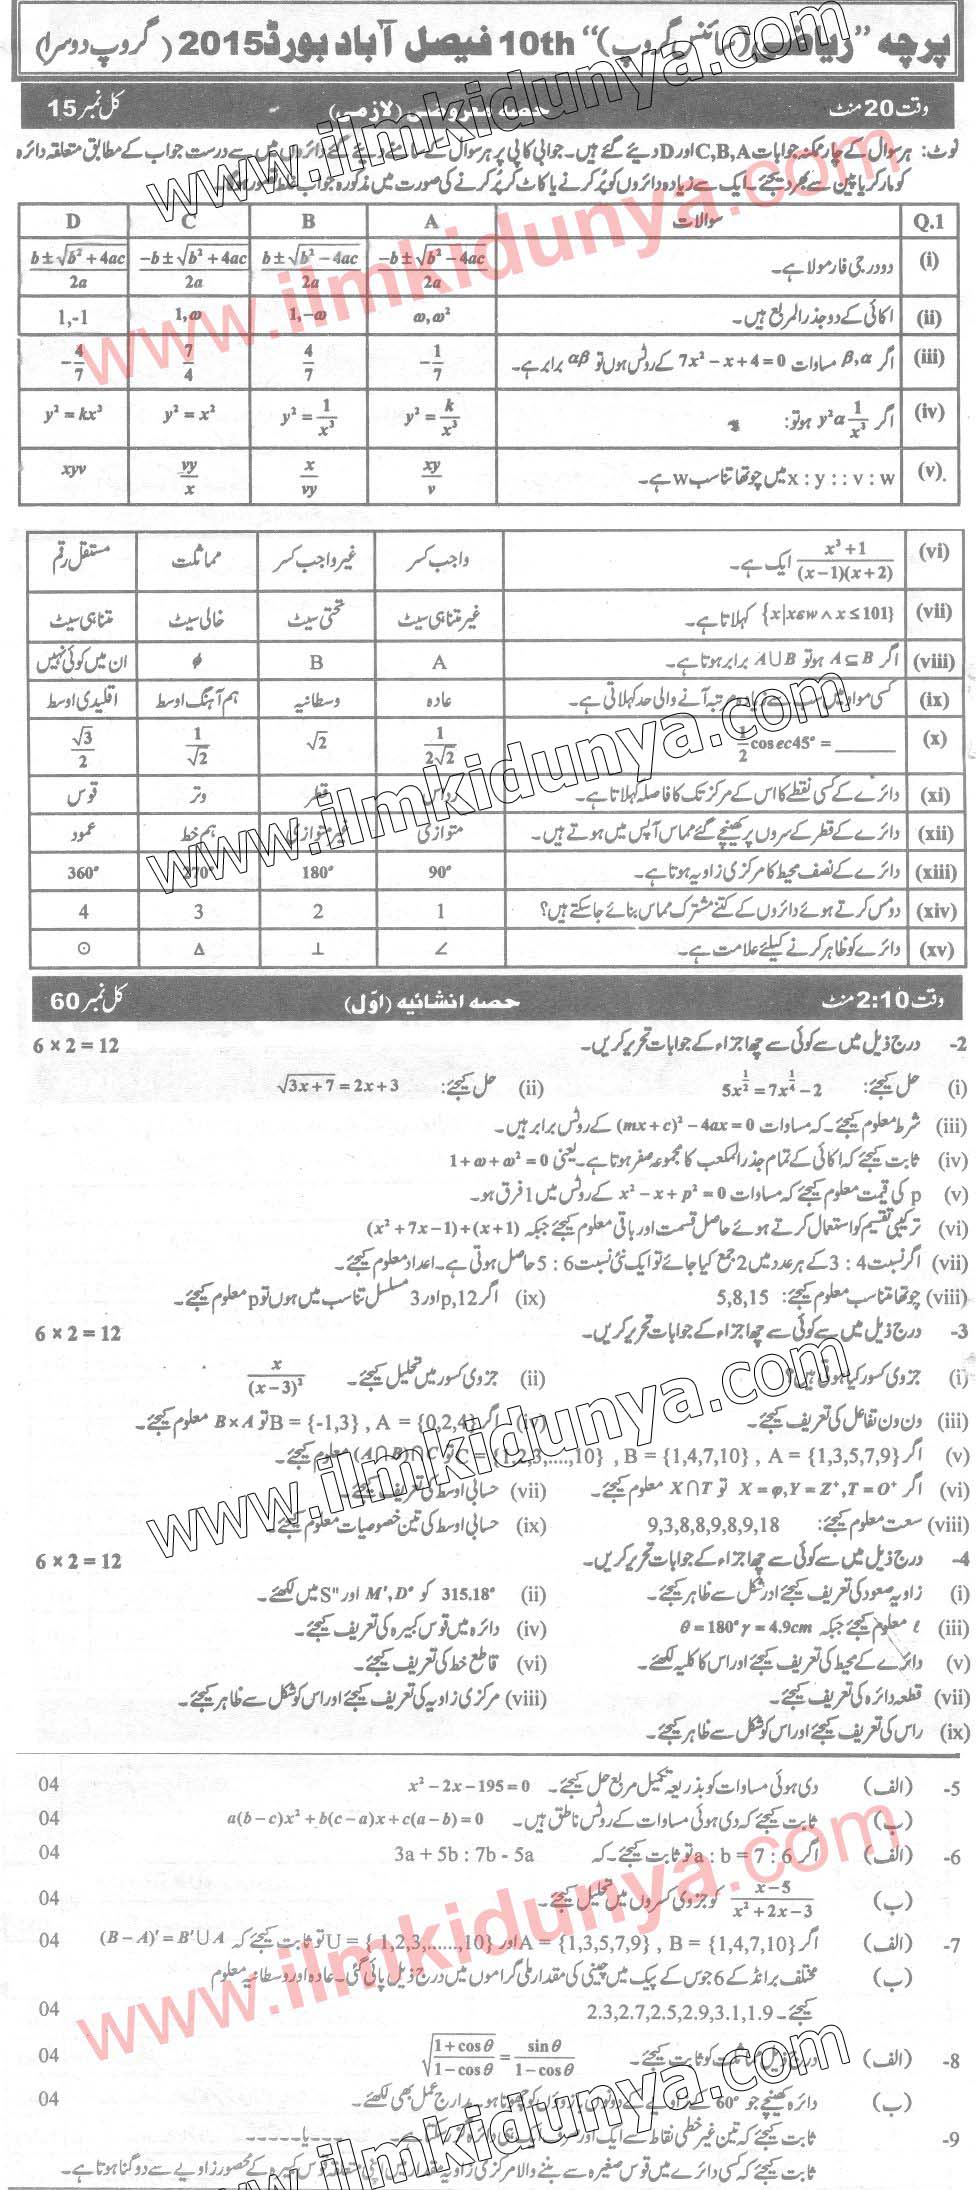 پرچہ "ریاضی (سائنس گروپ)" 10th فیصل آباد بورڈ 2015 (گروپ دوسرا)
وقت 20 منٹ حصہ معروضی (لازمی) کل نمبر 15
نوٹ: ہر سوال کے چار ممکنہ جوابات C,B,A اور D دیئے گئے ہیں۔ جوابی کاپی پر ہر سوال کے سامنے دیئے گئے دائروں میں سے درست جواب کے مطابق متعلقہ دائرہ
کو مارکر یا پین سے بھر دیجئے۔ ایک سے زیادہ دائروں کو پُر کرنے یا کاٹ کر پُر کرنے کی صورت میں مذکورہ جواب غلط تصور ہوگا۔
Q.1 سوالات A B C D
(i) دو درجی فارمولا ہے۔ (-b±√(b²-4ac))/2a (b±√(b²-4ac))/2a (-b±√(b²+4ac))/2a (b±√(b²+4ac))/2a
(ii) اکائی کے دو جذر المربع ہیں۔ ω,ω² 1,-ω 1,ω 1,-1
(iii) اگر β,α مساوات 7x²-x+4=0 کے روٹس ہوں تو αβ برابر ہے۔ -1/7 4/7 7/4 -4/7
(iv) اگر y²α 1/x³ ہو تو: y²=k/x³ y²=1/x³ y²=x² y²=kx³
(v) x : y : : v : w میں چوتھا تناسب w ہے۔ xy/v x/vy vy/x xyv
(vi) (x³+1)/((x-1)(x+2)) ایک ہے۔ واجب کسر غیر واجب کسر مماثلت مستقل رقم
(vii) {x|xεw∧x≤101} کہلاتا ہے۔ غیر متناہی سیٹ تحتی سیٹ خالی سیٹ متناہی سیٹ
(viii) اگر A⊆B ہو تو A∪B برابر ہوتا ہے۔ A B φ ان میں کوئی نہیں
(ix) کسی مواد میں سب سے زیادہ مرتبہ آنے والی حد کہلاتی ہے۔ عادہ وسطانیہ ہم آہنگ اوسط اقلیدی اوسط
(x) 1/2 cosec45° = ______ 1/(2√2) √2 1/√2 √3/2
(xi) دائرے کے کسی نقطے کا اس کے مرکز تک کا فاصلہ کہلاتا ہے۔ رداس قطر وتر قوس
(xii) دائرے کے قطر کے سروں پر کھینچے گئے مماس آپس میں ہوتے ہیں۔ متوازی غیر متوازی ہم خط عمود
(xiii) دائرے کے نصف محیط کا مرکزی زاویہ ہوتا ہے۔ 90° 180° 270° 360°
(xiv) دو مس کرتے ہوئے دائروں کے کتنے مشترک مماس بنائے جا سکتے ہیں؟ 1 2 3 4
(xv) دائرے کو ظاہر کرنے کیلئے علامت ہے۔ ∠ ⊥ Δ ⊙
وقت 2:10 منٹ حصہ انشائیہ (اوّل) کل نمبر 60
2- درج ذیل میں سے کوئی سے چھ اجزاء کے جوابات تحریر کریں۔ 6 × 2 = 12
(i) حل کیجئے: 5x^(1/2) = 7x^(1/4) - 2 (ii) حل کیجئے: √(3x+7) = 2x+3
(iii) شرط معلوم کیجئے۔ کہ مساوات (mx+c)²-4ax=0 کے روٹس برابر ہیں۔
(iv) ثابت کیجئے کہ اکائی کے تمام جذر المکعب کا مجموعہ صفر ہوتا ہے۔ یعنی 1+ω+ω²=0
(v) p کی قیمت معلوم کیجئے کہ مساوات x²-x+p²=0 کے روٹس میں 1 فرق ہو۔
(vi) ترکیبی تقسیم کو استعمال کرتے ہوئے حاصل قسمت اور باقی معلوم کیجئے جبکہ (x²+7x-1)÷(x+1)
(vii) اگر نسبت 4 : 3 کے ہر عدد میں 2 جمع کیا جائے تو ایک نئی نسبت 6 : 5 حاصل ہوتی ہے۔ اعداد معلوم کیجئے۔
(viii) چوتھا متناسب معلوم کیجئے: 5,8,15 (ix) اگر p,12 اور 3 مسلسل تناسب میں ہوں تو p معلوم کیجئے۔
3- درج ذیل میں سے کوئی سے چھ اجزاء کے جوابات تحریر کریں۔ 6 × 2 = 12
(i) جزوی کسور کیا ہوتی ہیں؟ (ii) جزوی کسور میں تحلیل کیجئے۔ x/(x-3)²
(iii) ون ون تفاعل کی تعریف کیجئے۔ (iv) اگر B = {-1,3} , A = {0,2,4} تو B×A معلوم کیجئے۔
(v) اگر C = {1,2,3,....,10} , B = {1,4,7,10} , A = {1,3,5,7,9} تو (A∩B)∩C معلوم کیجئے۔
(vi) اگر X=φ,Y=Z⁺,T=O⁺ تو X∩T معلوم کیجئے۔ (vii) حسابی اوسط کی تعریف کیجئے۔
(viii) سعت معلوم کیجئے: 9,3,8,8,9,8,9,18 (ix) حسابی اوسط کی تین خصوصیات معلوم کیجئے۔
4- درج ذیل میں سے کوئی سے چھ اجزاء کے جوابات تحریر کریں۔ 6 × 2 = 12
(i) زاویہ صعود کی تعریف کیجئے اور شکل سے ظاہر کیجئے۔ (ii) 315.18° کو M′,D° اور S" میں لکھئے۔
(iii) ℓ معلوم کیجئے جبکہ θ=180° γ=4.9cm (iv) دائرہ میں قوس کبیرہ کی تعریف کیجئے۔
(v) دائرے کے محیط کی تعریف کیجئے اور اس کا کلیہ لکھئے۔ (vi) قاطع خط کی تعریف کیجئے۔
(vii) قطعہ دائرہ کی تعریف کیجئے۔ (viii) مرکزی زاویہ کی تعریف کیجئے اور اس کو شکل سے ظاہر کیجئے۔
(ix) راس کی تعریف کیجئے اور اس کو شکل سے ظاہر کیجئے۔
5- (الف) دی ہوئی مساوات کو بذریعہ تکمیل مربع حل کیجئے۔ x²-2x-195=0 04
(ب) ثابت کیجئے کہ دی ہوئی مساوات کے روٹس ناطق ہیں۔ a(b-c)x²+b(c-a)x+c(a-b)=0 04
6- (الف) اگر a : b = 7 : 6 تو ثابت کیجئے۔ کہ 3a + 5b : 7b - 5a 04
(ب) (x-5)/(x²+2x-3) کو جزوی کسروں میں تحلیل کیجئے۔ 04
7- (الف) اگر A = {1,3,5,7,9} , B = {1,4,7,10} اور U = { 1,2,3,......,10} تو ثابت کیجئے کہ (B-A)′=B′∪A 04
(ب) مختلف برانڈ کے 6 جوس کے پیک میں چینی کی مقدار ملی گراموں میں درج ذیل پائی گئی۔ عادہ اور وسطانیہ معلوم
کیجئے۔ 2.3,2.7,2.5,2.9,3.1,1.9 04
8- (الف) درج ذیل مماثلت کو ثابت کیجئے۔ √((1+cosθ)/(1-cosθ)) = sinθ/(1-cosθ) 04
(ب) دائرہ کھینچے جو 60° کے زاویے کے دونوں بازوؤں کو چھوتا ہو۔ مدارج عمل بھی لکھئے۔ 04
9- ثابت کیجئے کہ تین غیر خطی نقاط سے ایک اور صرف ایک ہی دائرہ گزر سکتا ہے۔ -----یا-----
ثابت کیجئے کہ کسی دائرے میں قوس صغیرہ سے بننے والا مرکزی زاویہ مقدار میں اپنی متعلقہ قوس کبیرہ کے محصور زاویے سے دوگنا ہوتا ہے۔
www.ilmkidunya.com
www.ilmkidunya.com
www.ilmkidunya.com
www.ilmkidunya.com
www.ilmkidunya.com
www.ilmkidunya.com